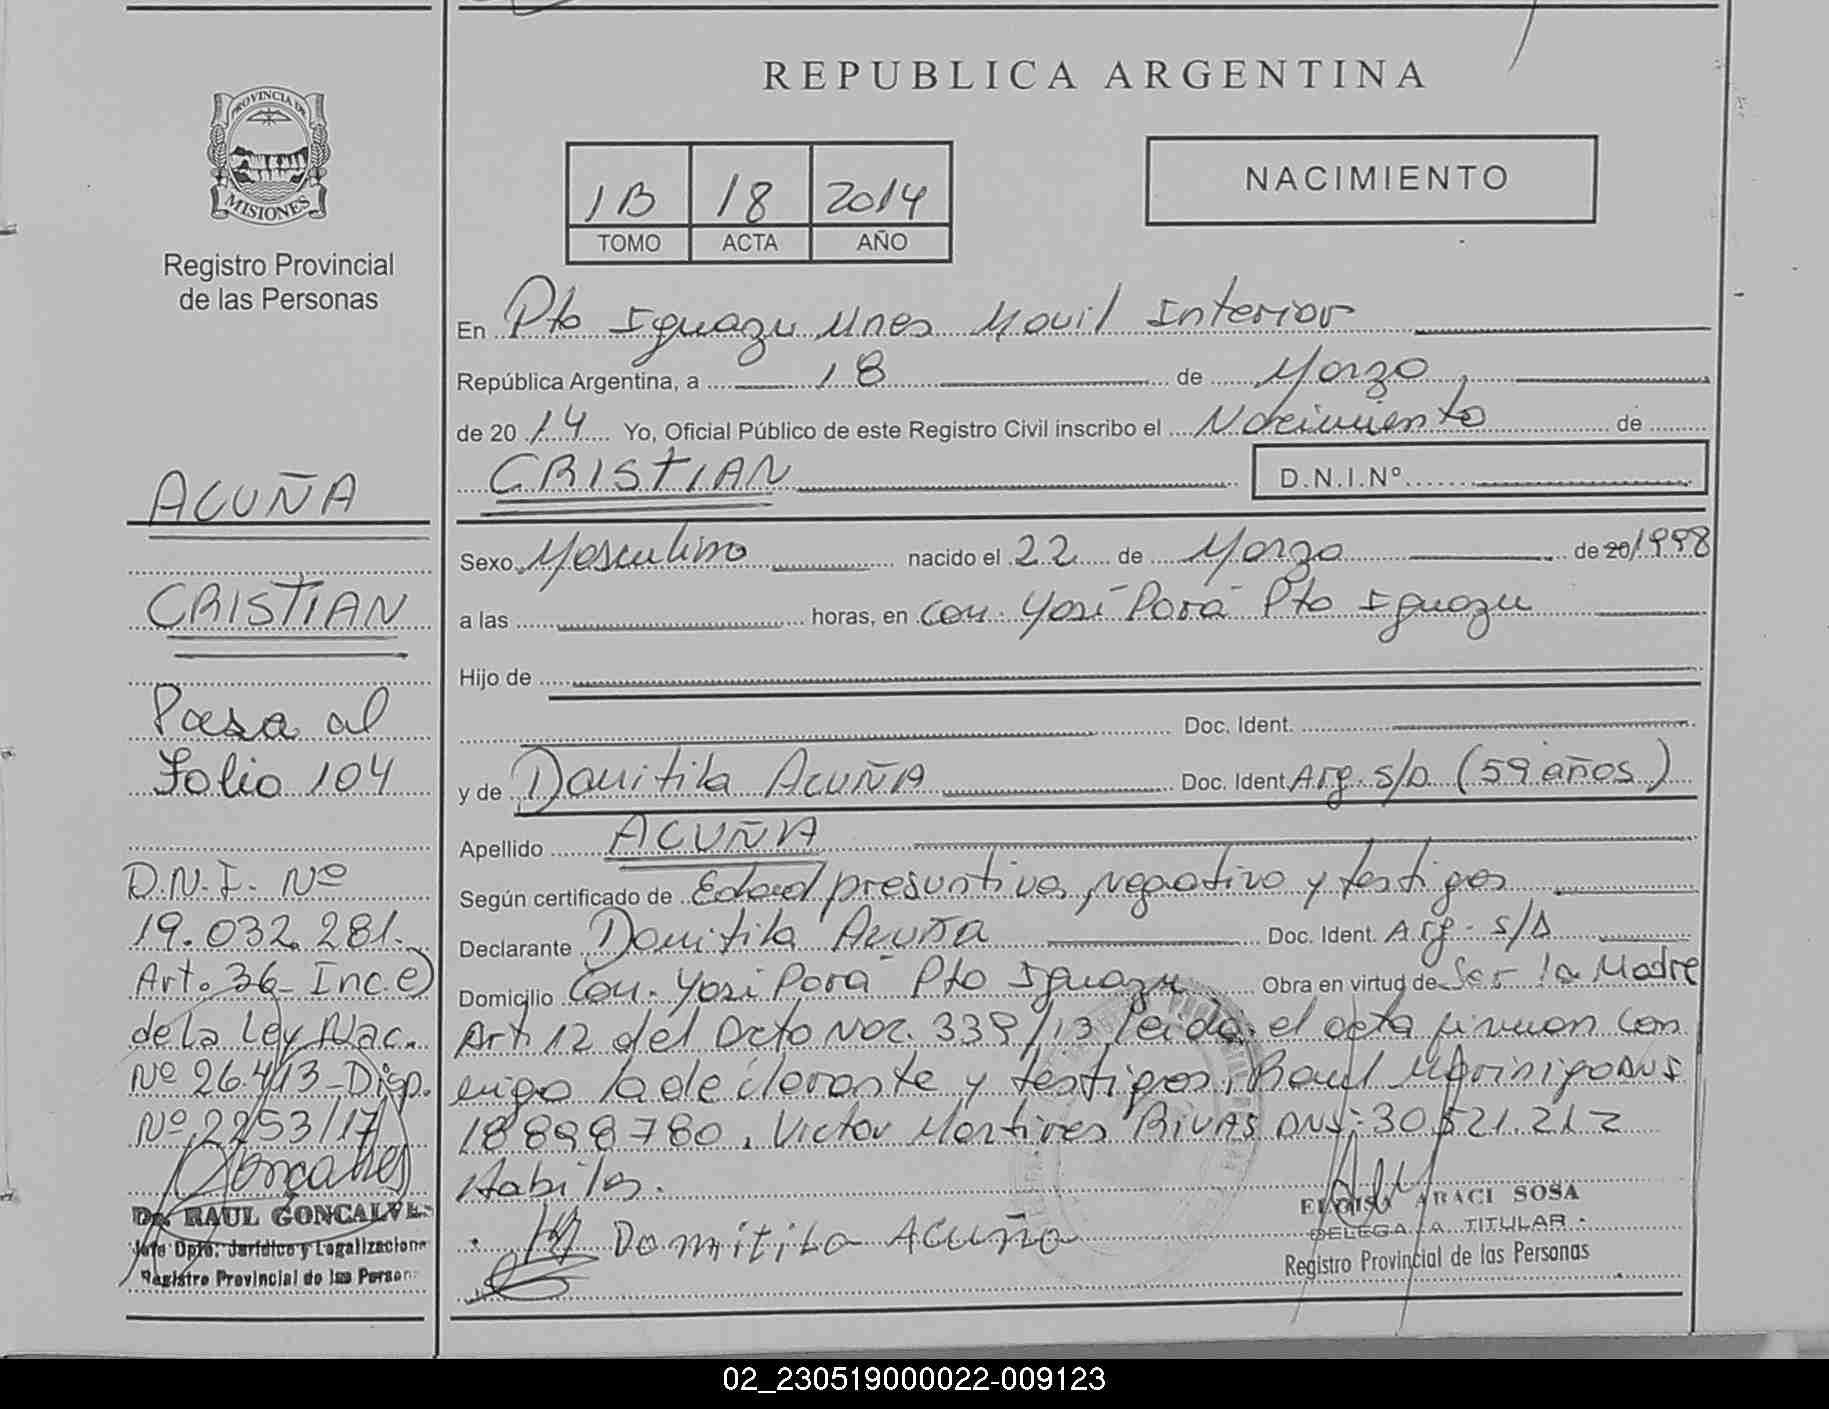 REPUBLICA ARGENTINA
PROVINCIA DE
MISIONES
Registro Provincial
de las Personas
1B 18 2014
TOMO ACTA AÑO
NACIMIENTO
En Pto Iguazu Unes Movil Interior
República Argentina, a 18 de Marzo
de 2014 Yo, Oficial Público de este Registro Civil inscribo el Nacimiento de
CRISTIAN D.N.I.Nº
Sexo Masculino nacido el 22 de Marzo de 20/1998
a las horas, en Com. Yasi Pora Pto Iguazu
Hijo de
Doc. Ident.
y de Domitila ACUÑA Doc. Ident. Arg. s/D (59 años)
Apellido ACUÑA
Según certificado de Edad presuntiva, negativo y testigos
Declarante Domitila Acuña Doc. Ident. Arg. s/D
Domicilio Com. Yasi Pora Pto Iguazu Obra en virtud de Ser la Madre
Art. 12 del Dcto Nac. 339/13 leida el acta firman con
migo la declarante y testigos, Raul Morinigo DNI
18898780, Victor Martires RIVAS DNI: 30.521.212
Habiles.
Domitila Acuña
ELOISA ARACI SOSA
DELEGADA TITULAR
Registro Provincial de las Personas
ACUÑA
CRISTIAN
Pasa al
Folio 104
D.N.I. Nº
19.032.281.
Art. 36 - Inc. e)
de la Ley Nac.
Nº 26.413 - Disp.
Nº 2253/17
Dr. RAUL GONCALVES
Jefe Dpto. Jurídico y Legalizacione
Registro Provincial de las Person
02_230519000022-009123